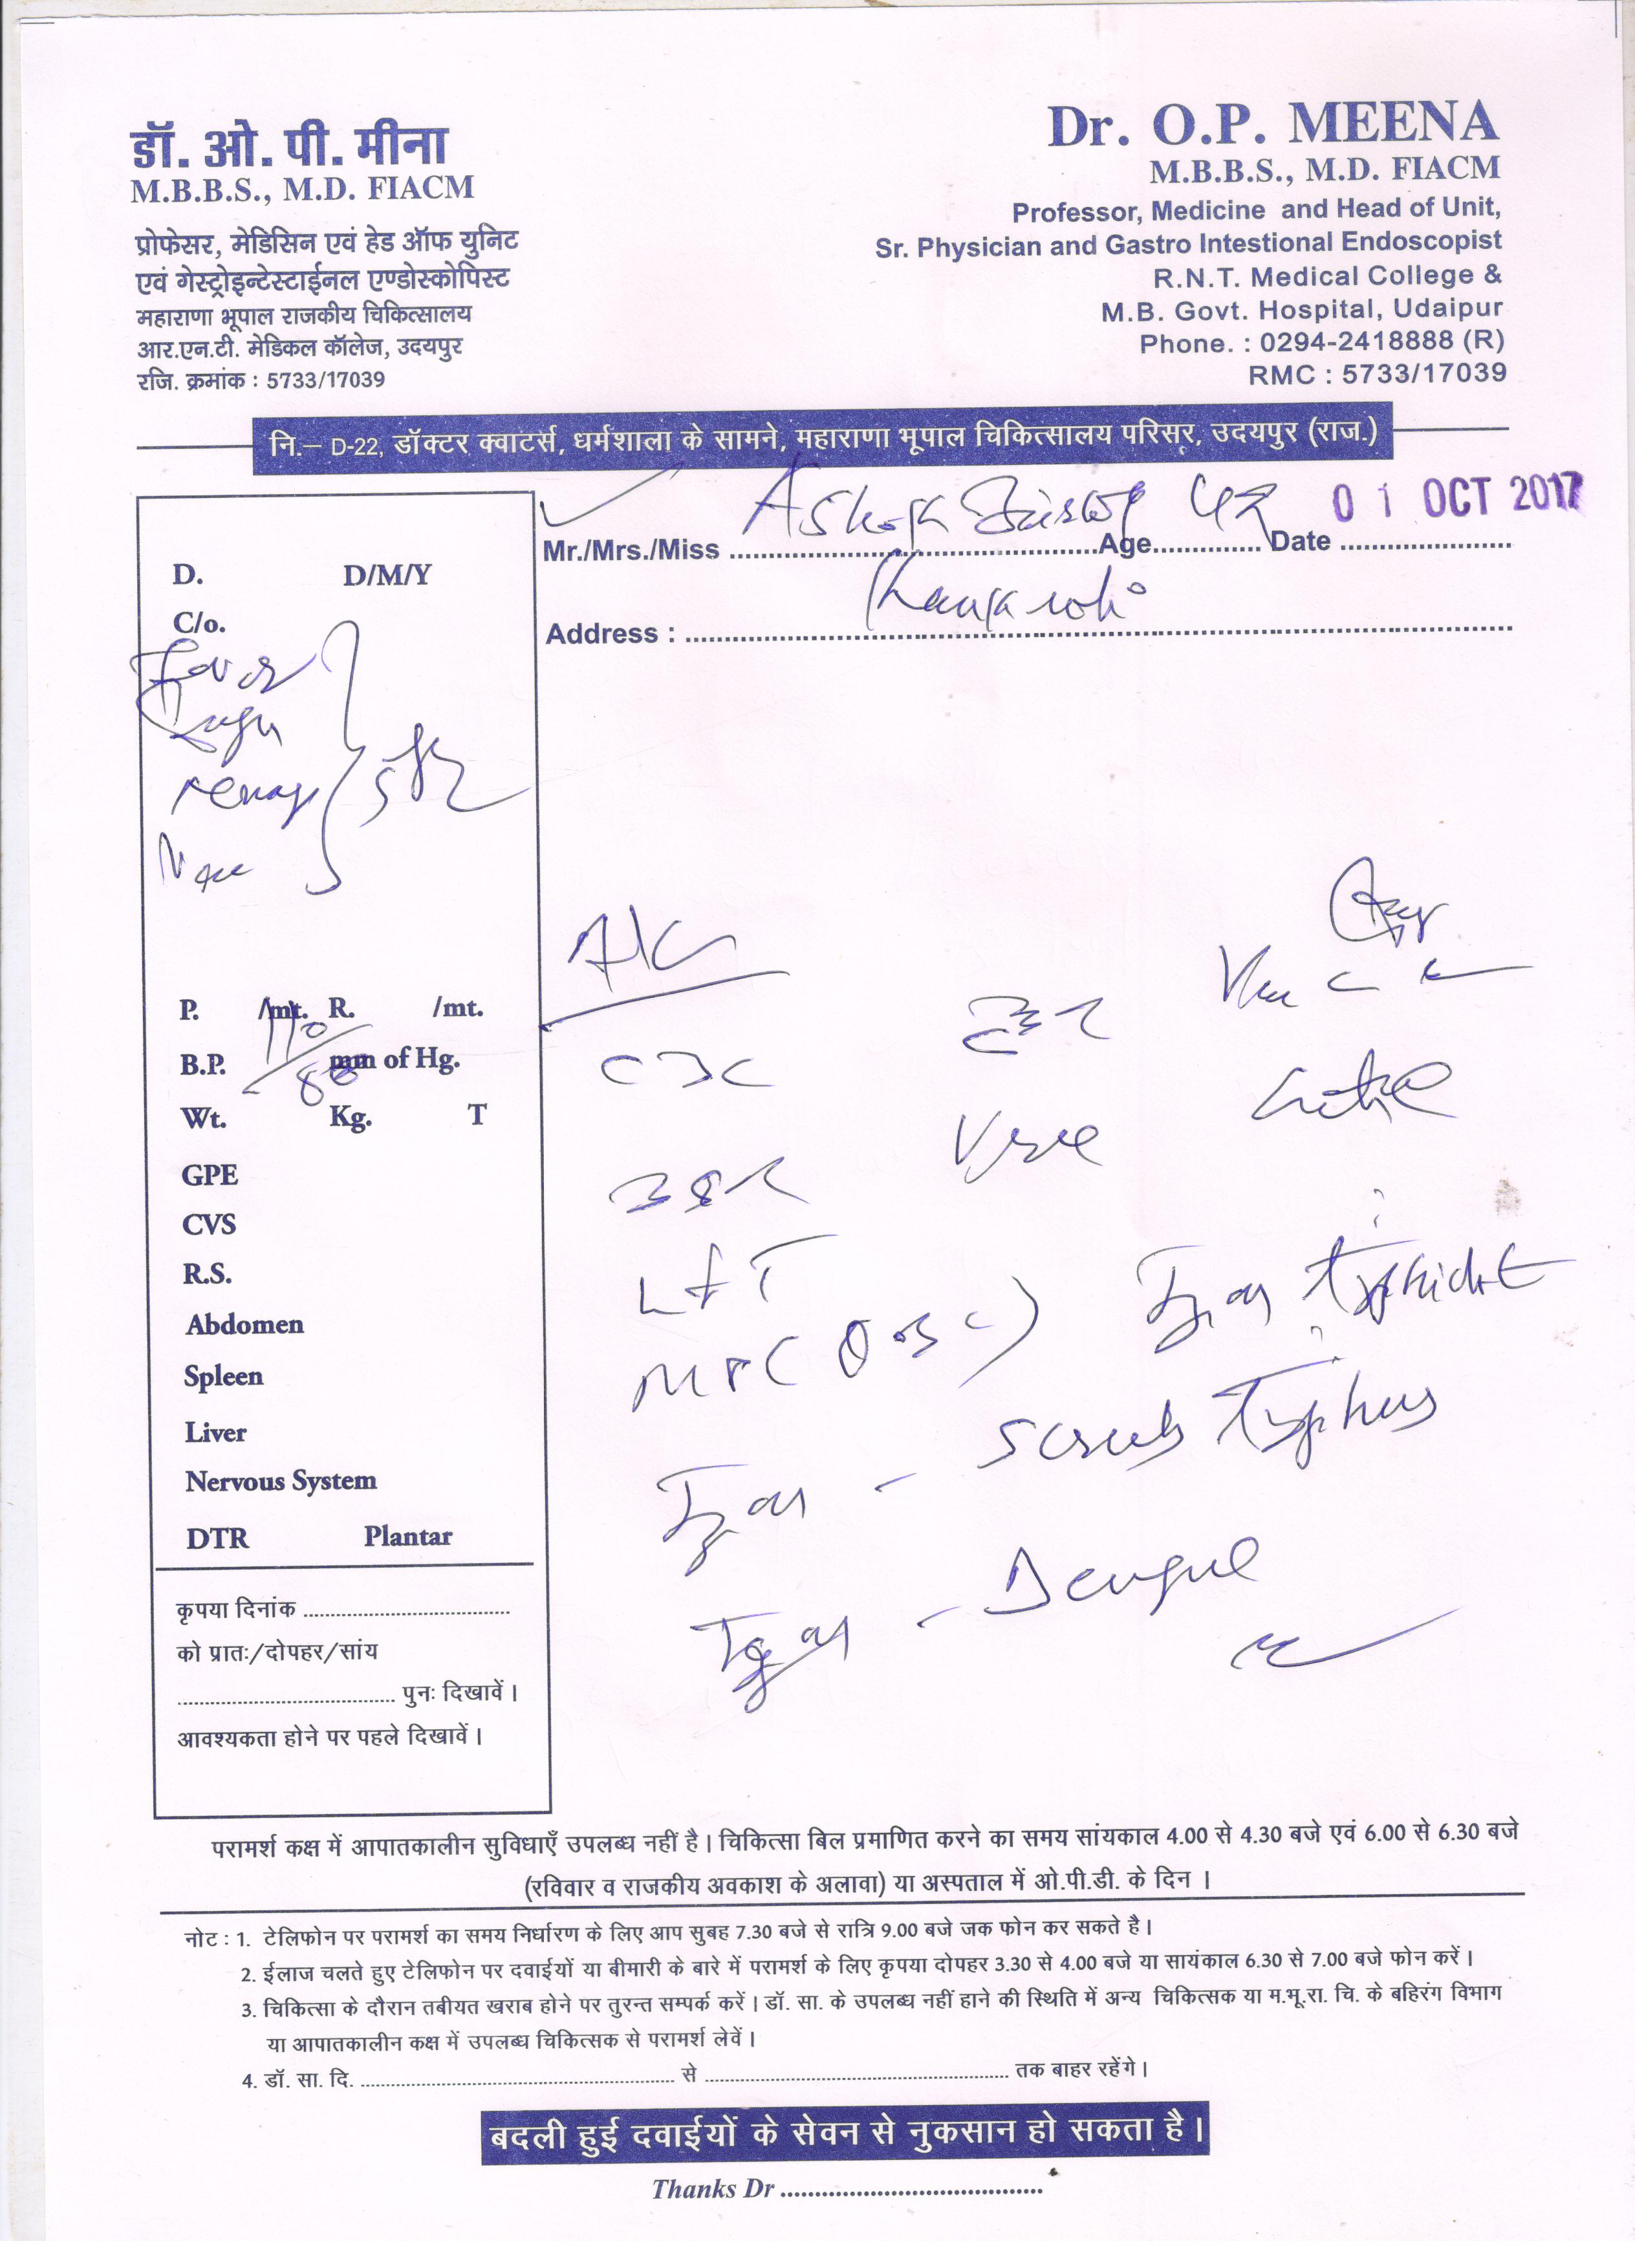 डॉ. ओ. पी. मीना
M.B.B.S., M.D. FIACM
प्रोफेसर, मेडिसिन एवं हेड ऑफ युनिट
एवं गेस्ट्रोइन्टेस्टाईनल एण्डोस्कोपिस्ट
महाराणा भूपाल राजकीय चिकित्सालय
आर.एन.टी. मेडिकल कॉलेज, उदयपुर
रजि. क्रमांक : 5733/17039
Dr. O.P. MEENA
M.B.B.S., M.D. FIACM
Professor, Medicine and Head of Unit,
Sr. Physician and Gastro Intestional Endoscopist
R.N.T. Medical College &
M.B. Govt. Hospital, Udaipur
Phone. : 0294-2418888 (R)
RMC : 5733/17039
नि.– D-22, डॉक्टर क्वाटर्स, धर्मशाला के सामने, महाराणा भूपाल चिकित्सालय परिसर, उदयपुर (राज.)
Mr./Mrs./Miss Ashok Age 42 Date 01 OCT 2017
Address : Kankroli
D. D/M/Y
C/o.
Fever
P. /mt. R. /mt.
B.P. 110/80 mm of Hg.
Wt. Kg. T
GPE
CVS
R.S.
Abdomen
Spleen
Liver
Nervous System
DTR Plantar
कृपया दिनांक
को प्रातः/दोपहर/सांय
पुनः दिखावें।
आवश्यकता होने पर पहले दिखावें।
CBC
ESR
LFT
MP (QBC)
Typhidot
Scrub Typhus
Dengue
परामर्श कक्ष में आपातकालीन सुविधाएँ उपलब्ध नहीं है। चिकित्सा बिल प्रमाणित करने का समय सांयकाल 4.00 से 4.30 बजे एवं 6.00 से 6.30 बजे
(रविवार व राजकीय अवकाश के अलावा) या अस्पताल में ओ.पी.डी. के दिन ।
नोट : 1. टेलिफोन पर परामर्श का समय निर्धारण के लिए आप सुबह 7.30 बजे से रात्रि 9.00 बजे जक फोन कर सकते है।
2. ईलाज चलते हुए टेलिफोन पर दवाईयों या बीमारी के बारे में परामर्श के लिए कृपया दोपहर 3.30 से 4.00 बजे या सायंकाल 6.30 से 7.00 बजे फोन करें।
3. चिकित्सा के दौरान तबीयत खराब होने पर तुरन्त सम्पर्क करें। डॉ. सा. के उपलब्ध नहीं हाने की स्थिति में अन्य चिकित्सक या म.भू.रा. चि. के बहिरंग विभाग
या आपातकालीन कक्ष में उपलब्ध चिकित्सक से परामर्श लेवें।
4. डॉ. सा. दि. से तक बाहर रहेंगे।
बदली हुई दवाईयों के सेवन से नुकसान हो सकता है।
Thanks Dr